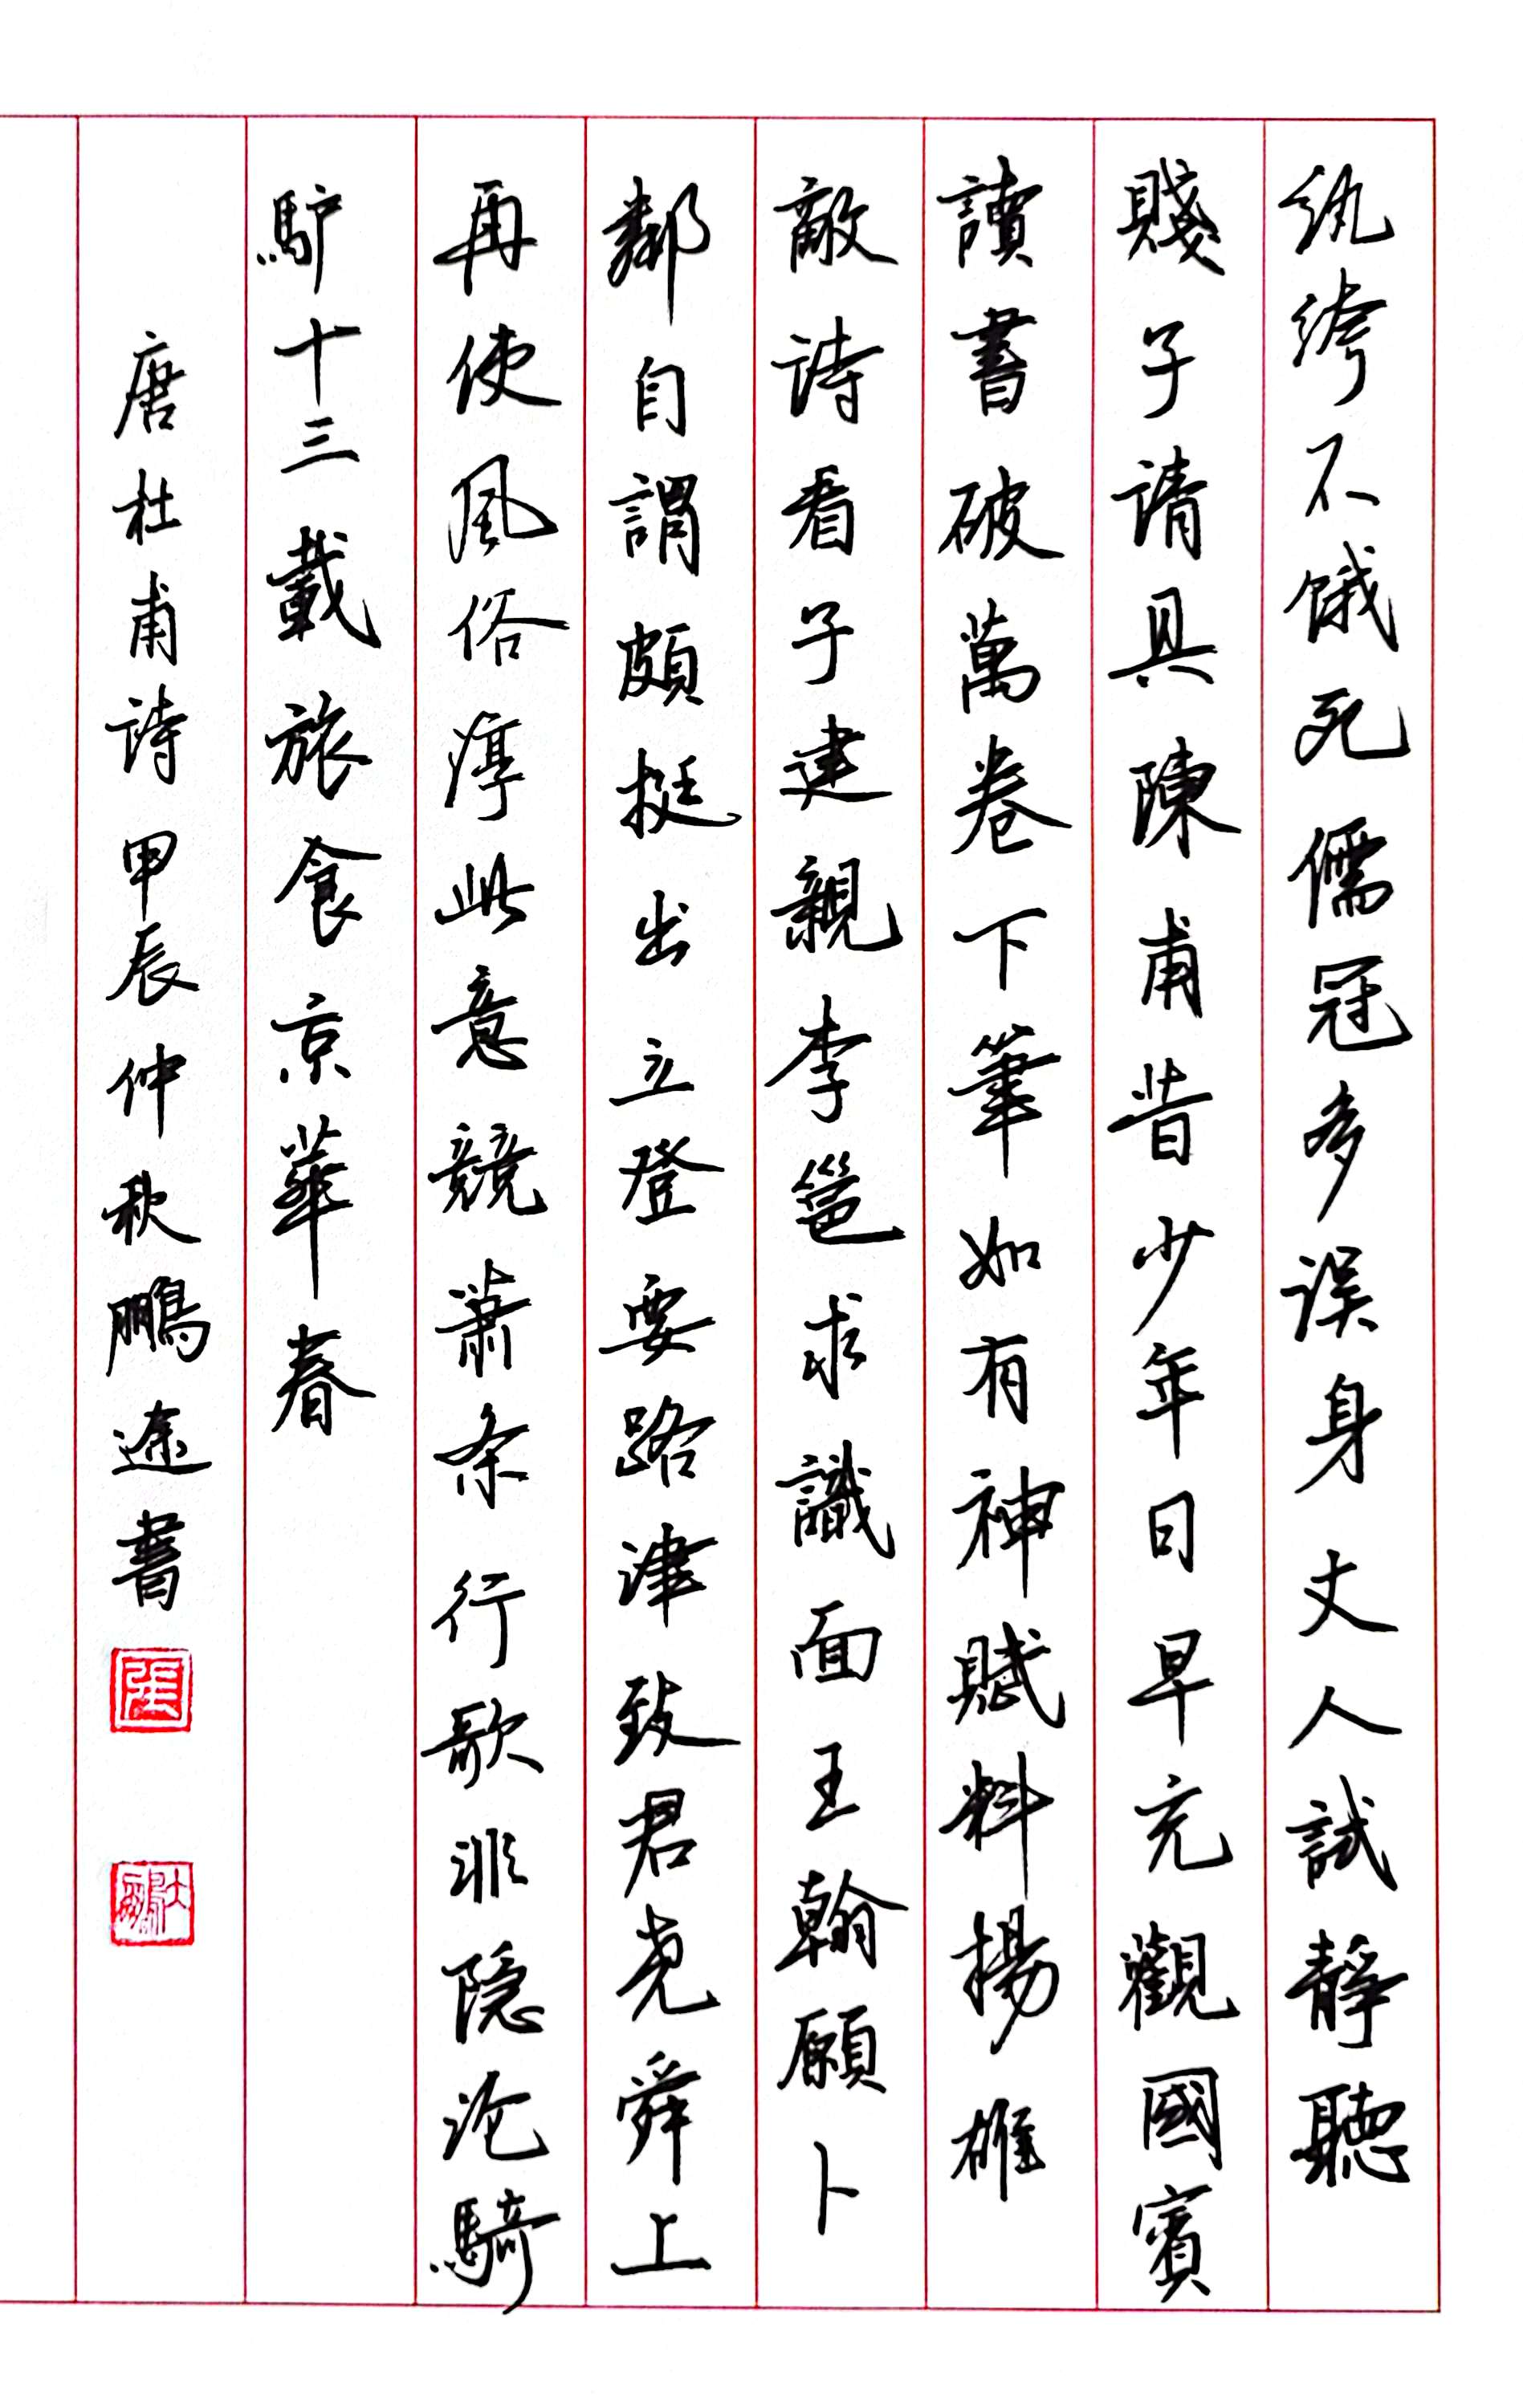 紈絝不餓死儒冠多误身丈人試靜聽
賤子请具陳甫昔少年日早充觀國賓
讀書破萬卷下筆如有神賦料揚雄
敵诗看子建親李邕求識面王翰願卜
鄰自謂頗挺出立登要路津致君尭舜上
再使風俗淳此意競蕭条行歌非隐沦騎
馿十三載旅食京華春
唐杜甫诗甲辰仲秋鵬途書